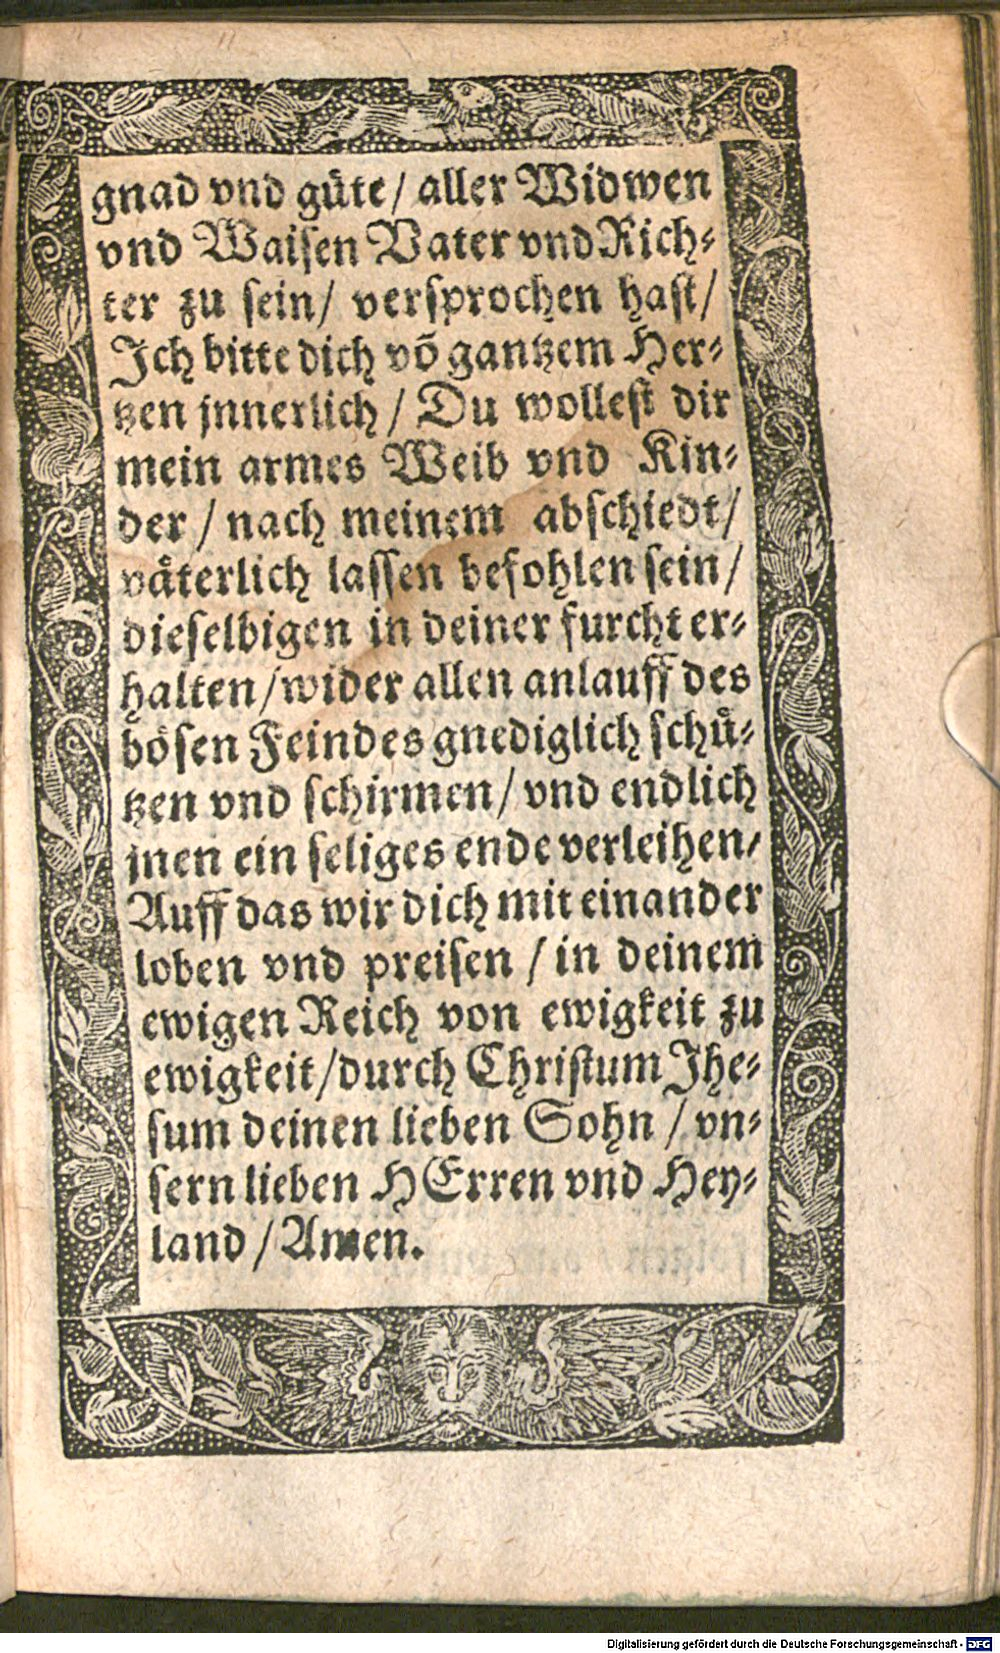 gnad vnd guͤte / aller Widwen
vnd Waisen Vater vnd Rich⸗
ter zu sein / versprochen hast /
Ich bitte dich võ gantzem Her⸗
tzen jnnerlich / Du wollest dir
mein armes Weib vnd Kin⸗
der / nach meinem abschiedt /
vaͤterlich lassen befohlen sein /
dieselbigen in deiner furcht er⸗
halten / wider allen anlauff des
boͤsen Feindes gnediglich schuͤ⸗
tzen vnd schirmen / vnd endlich
jnen ein seliges ende verleihen /
Auff das wir dich mit einander
loben vnd preisen / in deinem
ewigen Reich von ewigkeit zu
ewigkeit / durch Christum Jhe⸗
sum deinen lieben Sohn / vn⸗
sern lieben HErren vnd Hey⸗
land / Amen.
Digitalisierung gefördert durch die Deutsche Forschungsgemeinschaft - DFG